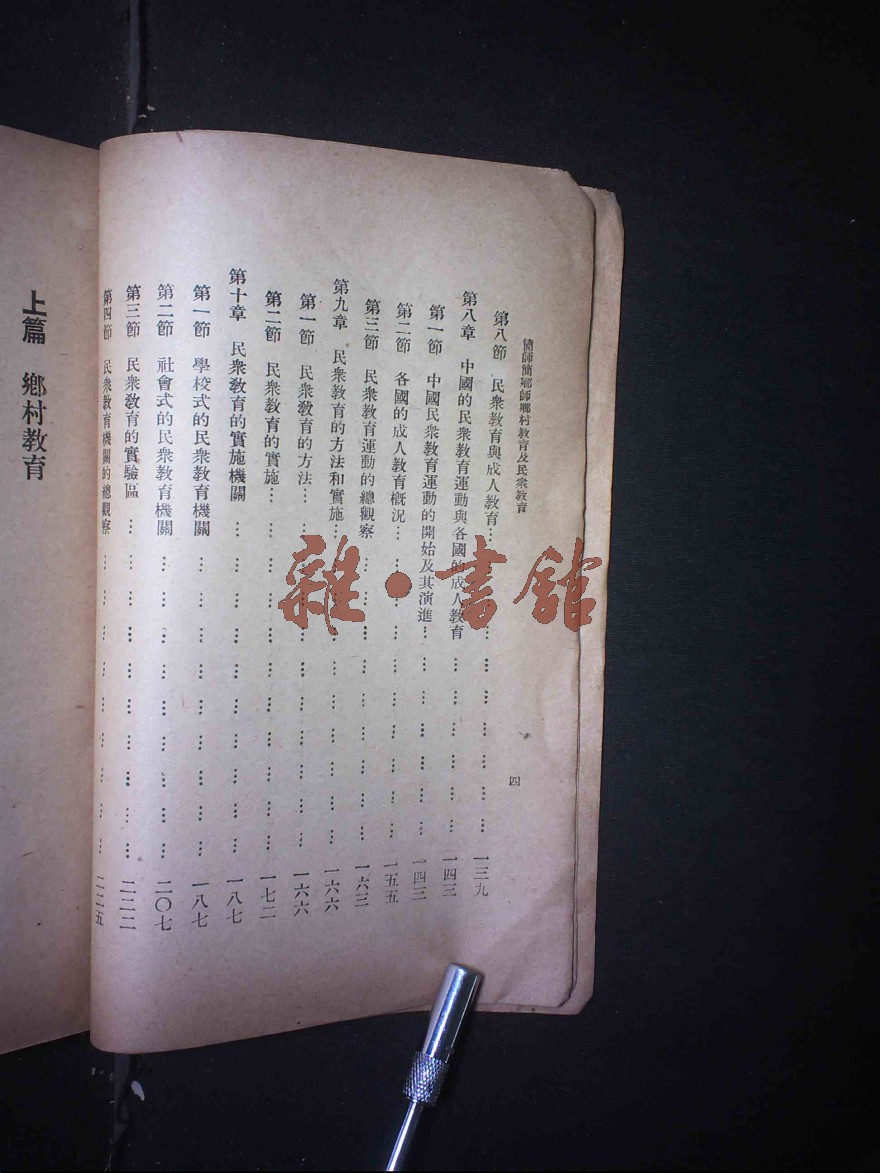 簡師簡鄉師鄉村教育及民衆教育
四
第八節 民衆教育與成人教育… … … … … … … … … 一三九
第八章 中國的民衆教育運動與各國的成人教育 … … … … … … 一四三
第一節 中國民衆教育運動的開始及其演進… … … … … … 一四三
第二節 各國的成人教育概況… … … … … … … … … 一五五
第三節 民衆教育運動的總觀察 … … … … … … … … 一六三
第九章 民衆教育的方法和實施… … … … … … … … … 一六六
第一節 民衆教育的方法… … … … … … … … … … 一六六
第二節 民衆教育的實施… … … … … … … … … … 一七二
第十章 民衆教育的實施機關 … … … … … … … … … … 一八七
第一節 學校式的民衆教育機關 … … … … … … … … … 一八七
第二節 社會式的民衆教育機關 … … … … … … … … … 二〇七
第三節 民衆教育的實驗區 … … … … … … … … … … 二二二
第四節 民衆教育機關的總觀察 … … … … … … … … … 二二五
上篇 鄉村教育
雜·書館